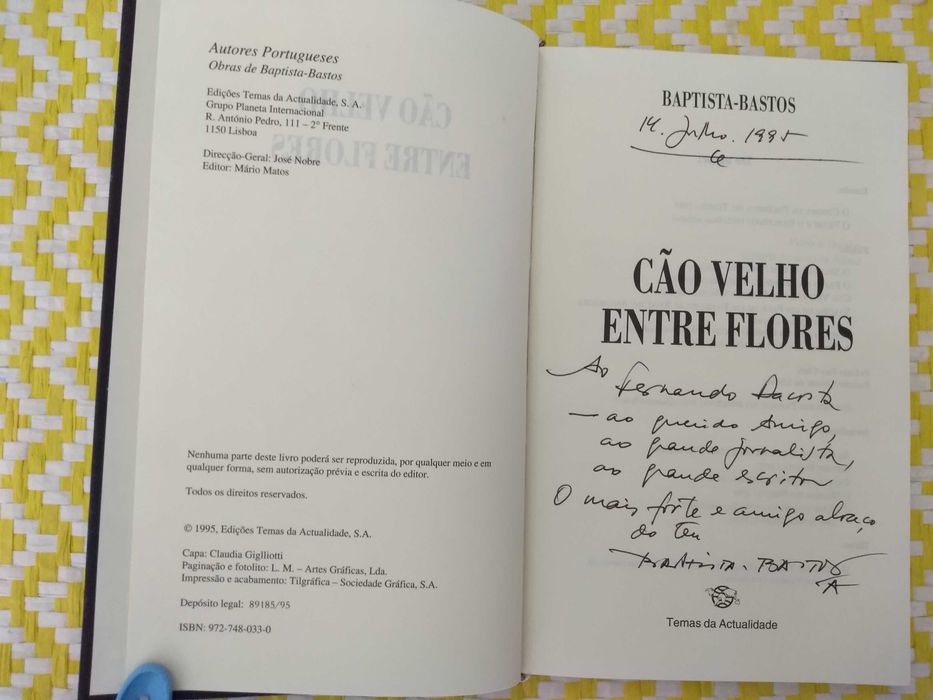 Autores Portugueses
Obras de Baptista-Bastos
Edições Temas da Actualidade, S. A.
Grupo Planeta Internacional
R. António Pedro, 111 – 2º Frente
1150 Lisboa
Direcção-Geral: José Nobre
Editor: Mário Matos
Nenhuma parte deste livro poderá ser reproduzida, por qualquer meio e em
qualquer forma, sem autorização prévia e escrita do editor.
Todos os direitos reservados.
© 1995, Edições Temas da Actualidade, S.A.
Capa: Claudia Giglliotti
Paginação e fotolito: L. M. – Artes Gráficas, Lda.
Impressão e acabamento: Tilgráfica – Sociedade Gráfica, S.A.
Depósito legal: 89185/95
ISBN: 972-748-033-0
BAPTISTA-BASTOS
14. Julho. 1995
CÃO VELHO
ENTRE FLORES
Ao Fernando Dacosta
— ao querido Amigo,
ao grande jornalista,
ao grande escritor
O mais forte e amigo abraço
do teu
BAPTISTA-BASTOS
Temas da Actualidade